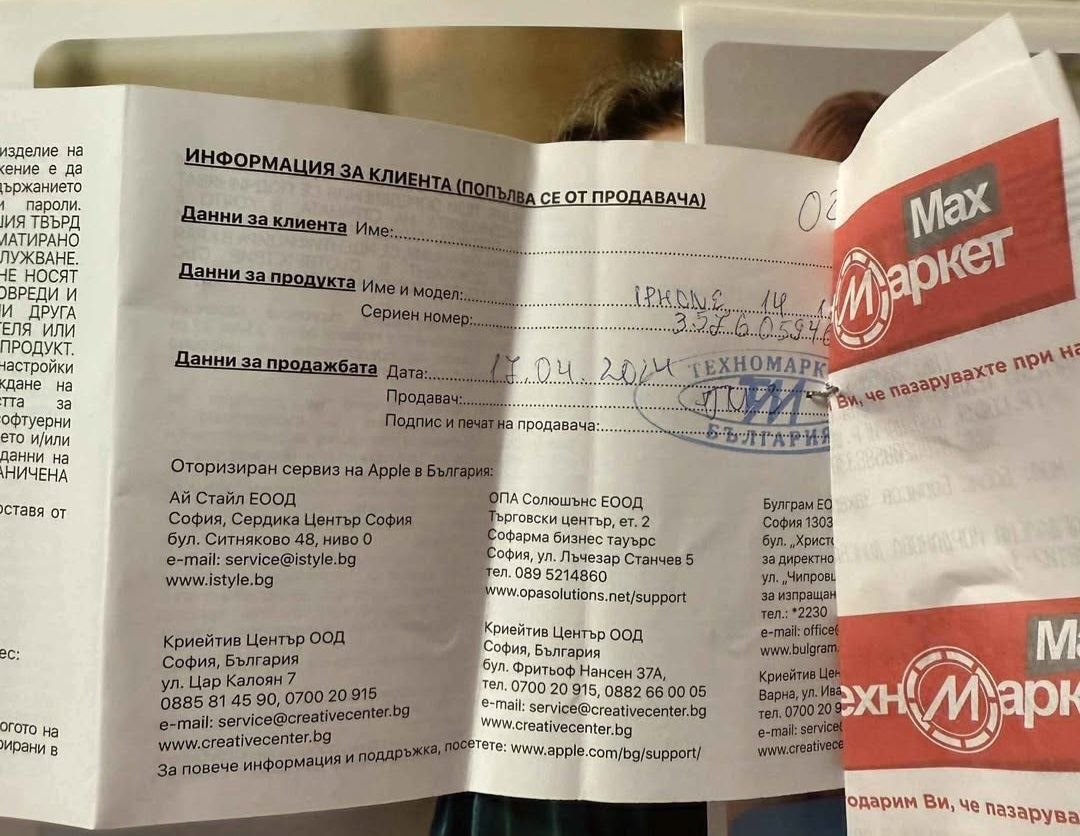 изделие на
жение е да
ържанието
и пароли.
ШИЯ ТВЪРД
МАТИРАНО
ЛУЖВАНЕ.
НЕ НОСЯТ
ОВРЕДИ И
И ДРУГА
ТЕЛЯ ИЛИ
ПРОДУКТ.
настройки
ждане на
стта за
офтуерни
ето и/или
данни на
АНИЧЕНА
оставя от
ес:
ИНФОРМАЦИЯ ЗА КЛИЕНТА (ПОПЪЛВА СЕ ОТ ПРОДАВАЧА)
Данни за клиента Име:
Данни за продукта Име и модел: IPHONE 14
Сериен номер: 357605946
Данни за продажбата Дата: 17.04.2024
Продавач:
Подпис и печат на продавача:
ТЕХНОМАРК
ТМ
БЪЛГАРИЯ
Оторизиран сервиз на Apple в България:
Ай Стайл ЕООД
София, Сердика Център София
бул. Ситняково 48, ниво 0
e-mail: service@istyle.bg
www.istyle.bg
ОПА Солюшънс ЕООД
Търговски център, ет. 2
Софарма бизнес тауърс
София, ул. Лъчезар Станчев 5
тел. 089 5214860
www.opasolutions.net/support
Булграм ЕО
София 1303
бул. „Христо
за директно
ул. „Чипровц
за изпращан
тел.: *2230
e-mail: office@
www.bulgram.
Криейтив Център ООД
София, България
ул. Цар Калоян 7
0885 81 45 90, 0700 20 915
e-mail: service@creativecenter.bg
www.creativecenter.bg
Криейтив Център ООД
София, България
бул. Фритьоф Нансен 37А,
тел. 0700 20 915, 0882 66 00 05
e-mail: service@creativecenter.bg
www.creativecenter.bg
Криейтив Цен
Варна, ул. Ива
тел. 0700 20 9
e-mail: service
www.creativece
За повече информация и поддръжка, посетете: www.apple.com/bg/support/
Max
Маркет
Ви, че пазарувахте при на
Ma
ехноМарк
одарим Ви, че пазарува